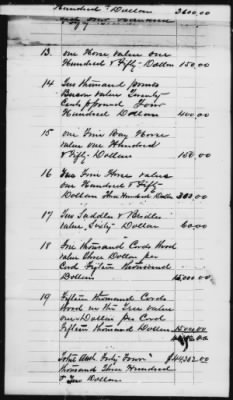 Hundred Dollars 3600.00
13. one Horse value one
Hundred & Fifty Dollars 150.00
14 Two Thousand pounds
Bacon value Twenty
Cents p pound Four
Hundred Dollars 400.00
15 one Fine Bay Horse
value one Hundred
& Fifty Dollars 150.00
16 Two Fine Horses value
one Hundred & Fifty
Dollars Three Hundred Dollars 300.00
17 Two Saddles & Bridles
value Sixty Dollars 60.00
18 Five thousand Cords Wood
value Three Dollars per
Cord Fifteen Thousand
Dollars 15,000.00
19 Fifteen thousand Cords
Wood in the Tree value
one Dollar per Cord
Fifteen thousand Dollars 15,000.00
Total Amt Forty Four $44,302.00
Thousand Three Hundred
& Two Dollars